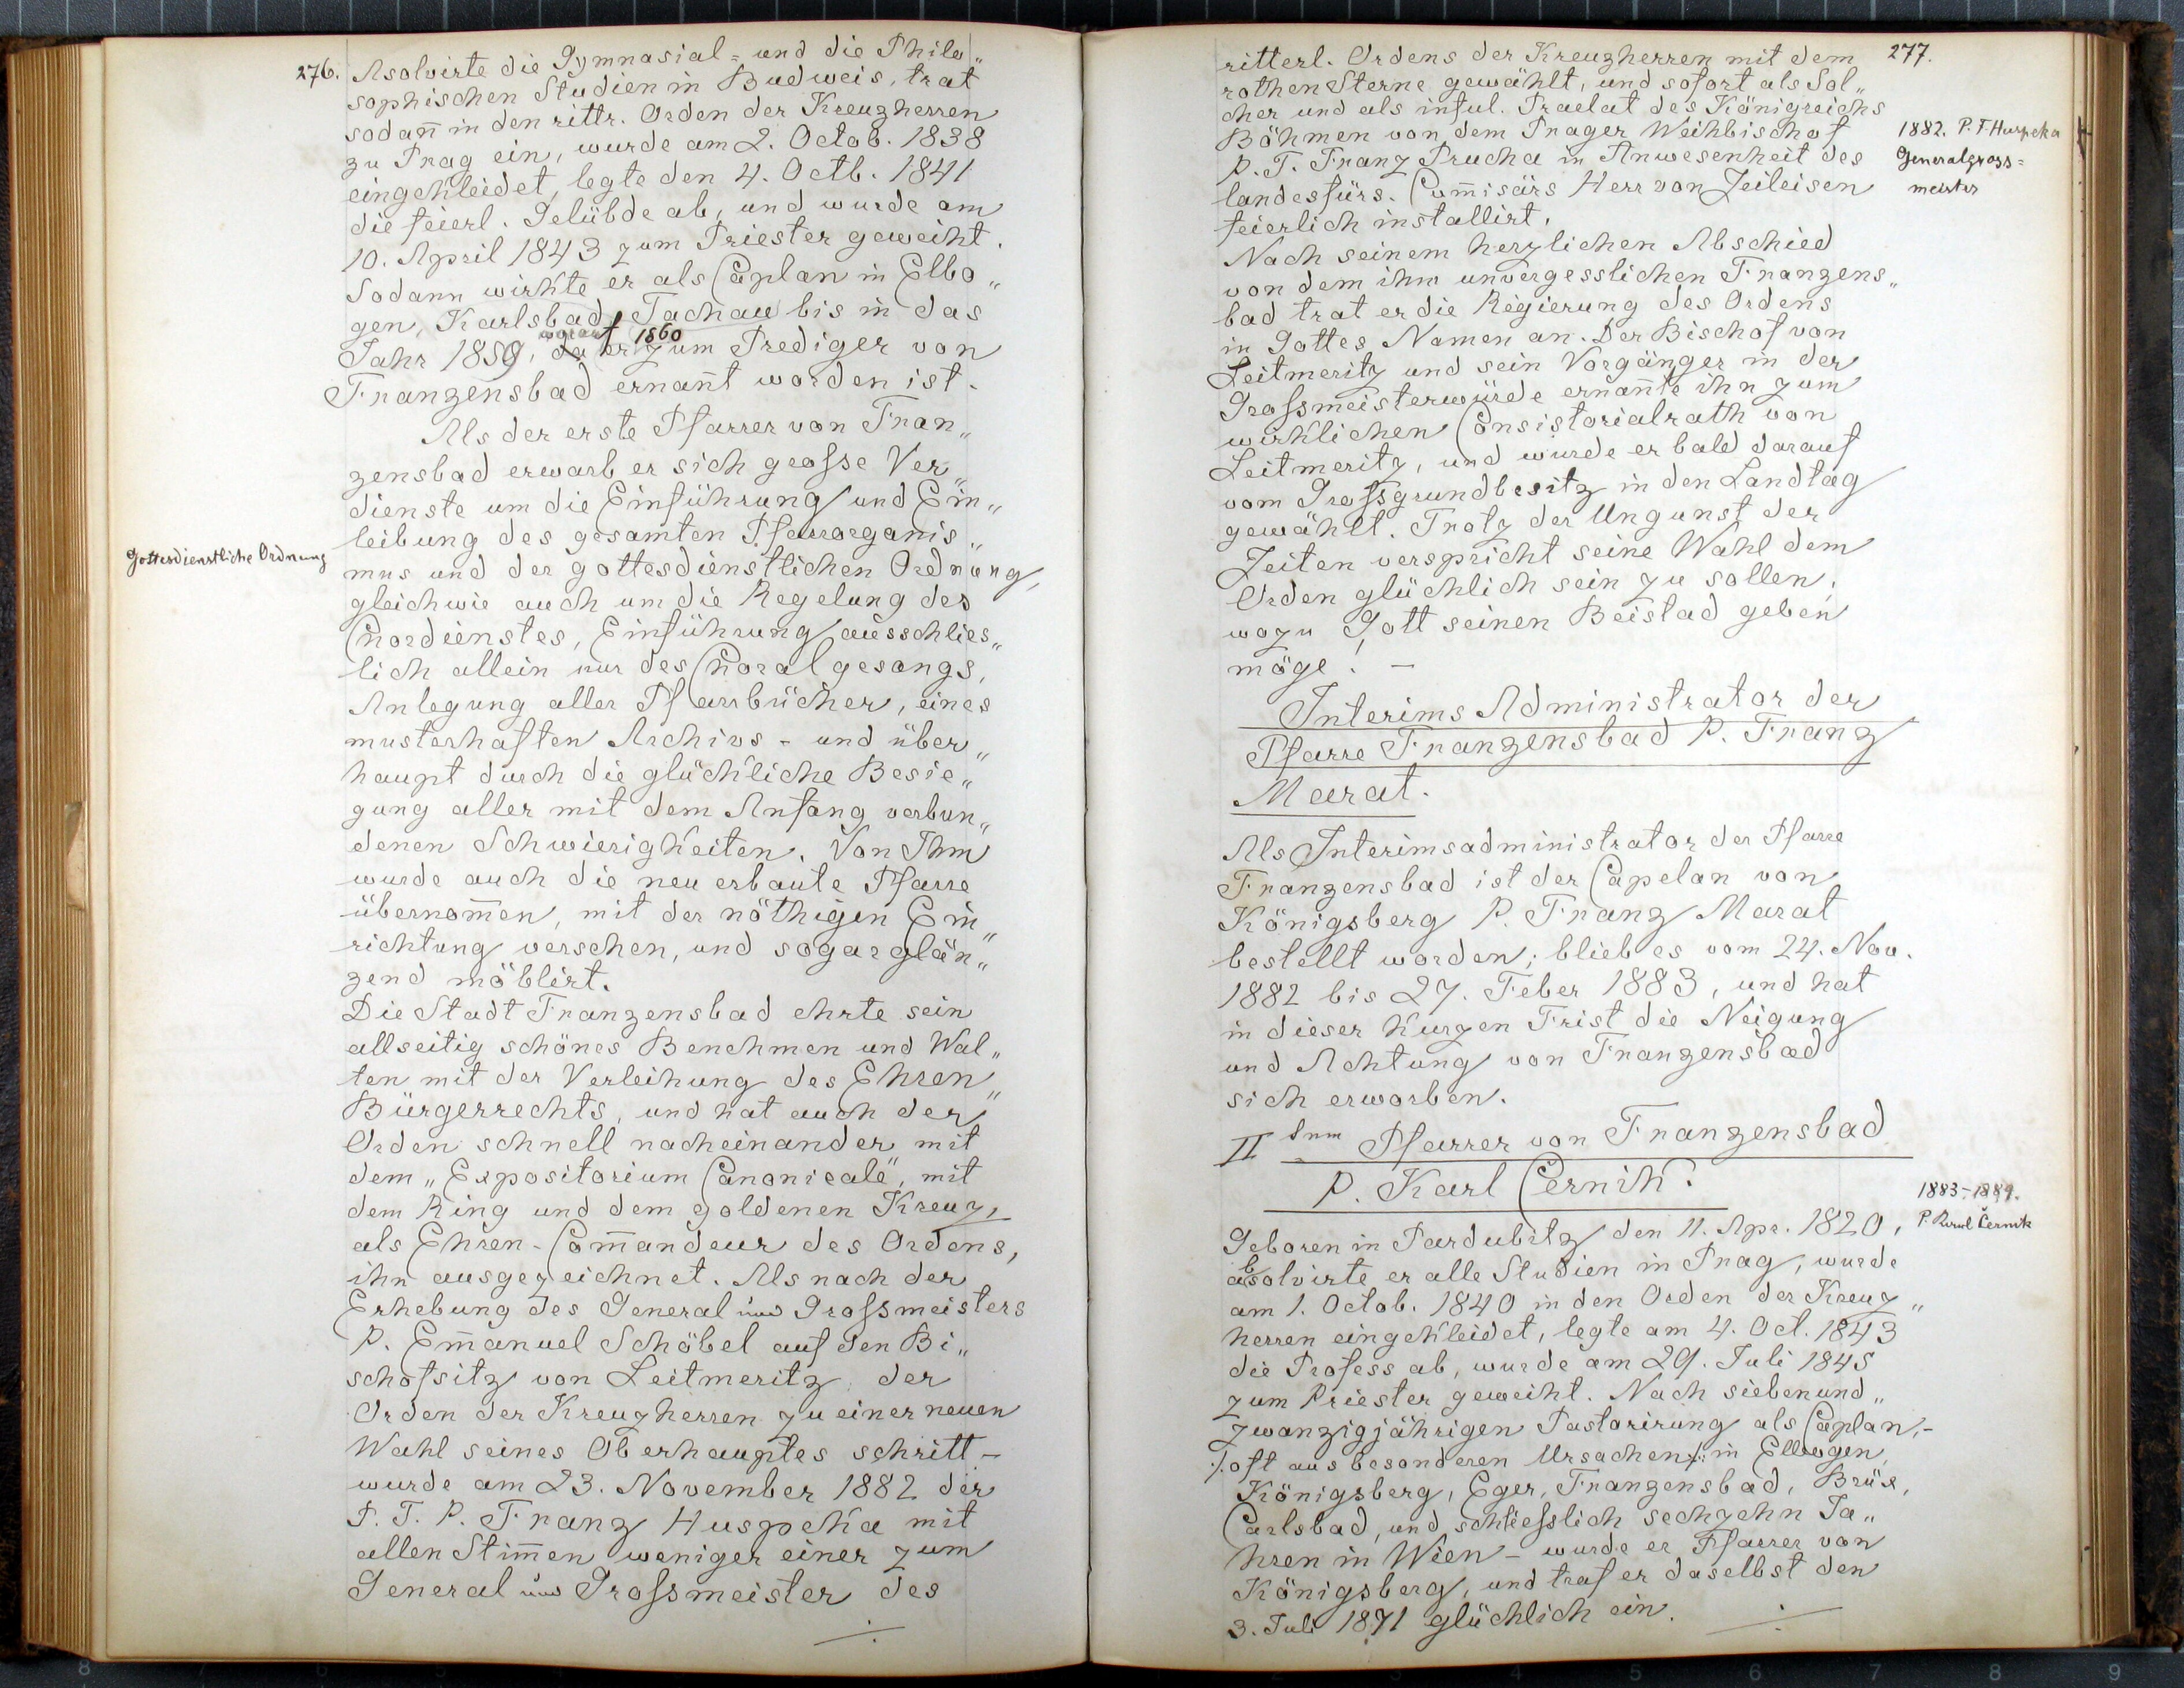 276.
Asolvirte die Gymnasial= und die Philo„
sophischen Studien in Budweis, trat
sodan̄ in den rittr. Orden der Kreuzherren
zu Prag ein, wurde am 2. Octob. 1838
eingekleidet, legte den 4. Octb. 1841
die feierl. Gelübde ab, und wurde am
10. April 1843 zum Priester geweiht.
Sodann wirkte er als Caplan in Elbo„
gen, Karlsbad, Tachau bis in das
worauf 1860
Jahr 1859, da er zum Prediger von
Franzensbad ernan̄t worden ist.
Als der erste Pfarrer von Fran„
zensbad erwarb er sich grosse Ver„
dienste um die Einführung und Ein„
leibung des gesamten Pfarrorganis„
Gottesdienstliche Ordnung
mus und der gottesdienstlichen Ordnung,
gleichwie auch um die Regelung des
Chordienstes, Einführung ausschlies„
lich allein nur des Choralgesangs,
Anlegung aller Pfarrbücher, eines
musterhaften Archivs - und über„
haupt durch die glückliche Besie„
gung aller mit dem Anfang verbun„
denen Schwierigkeiten. Von Ihm
wurde auch die neu erbaute Pfarre
übernom̄en, mit der nöthigen Ein„
richtung versehen, und sogar glän„
zend möblirt.
Die Stadt Franzensbad ehrte sein
allseitig schönes Benehmen und Wal„
ten mit der Verleihung des Ehren„
Bürgerrechts, und hat auch der
Orden schnell nacheinander mit
dem „Expositorium Canonicale", mit
dem Ring und dem goldenen Kreuz,
als Ehren-Com̄andeur des Ordens,
ihn ausgezeichnet. Als nach der
Erhebung des General und Grossmeisters
P. Em̄anuel Schöbel auf den Bi„
schofsitz von Leitmeritz der
Orden der Kreuzherren zu einer neuen
Wahl seines Oberhauptes schritt -
wurde am 23. November 1882 der
P. T. P. Franz Huspeka mit
allen Stim̄en weniger einer zum
General und Grossmeister des
277.
ritterl. Ordens der Kreuzherren mit dem
rothen Sterne gewählt, und sofort als Sol„
cher und als inful. Praelat des Königreichs
Böhmen von dem Prager Weihbischof
1882. P. F. Huspeka
Generalgross=
meister
P. T. Franz Prucha in Anwesenheit des
landesfürs. Com̄isärs Herr von Zeileisen
feierlich installirt.
Nach seinem herzlichen Abschied
von dem ihm unvergesslichen Franzens„
bad trat er die Regierung des Ordens
in Gottes Namen an. Der Bischof von
Leitmeritz und sein Vorgänger in der
Grossmeisterwürde ernan̄te ihn zum
wirklichen Consistorialrath von
Leitmeritz, und wurde er bald darauf
vom Grossgrundbesitz in den Landtag
gewählt. Trotz der Ungunst der
Zeiten verspricht seine Wahl dem
Orden glücklich sein zu sollen,
wozu Gott seinen Beistad geben
möge! -
Interims Administrator der
Pfarre Franzensbad P. Franz
Marat.
Als Interimsadministrator der Pfarre
Franzensbad ist der Capelan von
Königsberg P. Franz Marat
bestellt worden; blieb es vom 24. Nov.
1882 bis 27. Feber 1883, und hat
in dieser kurzen Frist die Neigung
und Achtung von Franzensbad
sich erworben.
II Pfarrer von Franzensbad
P. Karl Cernik.
1883-1889.
P. Karl Černik
Geboren in Pardubitz den 11. Apr. 1820,
absolvirte er alle Studien in Prag, wurde
am 1. Octob. 1840 in den Orden der Kreuz„
herren eingekleidet, legte am 4. Oct. 1843
die Profess ab, wurde am 29. Juli 1845
zum Priester geweiht. Nach siebenund„
zwanzigjährigen Pastorirung als Caplan,-
./. oft aus besonderen Ursachen ./. in Ellbogen,
Königsberg, Eger, Franzensbad, Brüx,
Carlsbad, und schliesslich sechzehn Ja„
hren in Wien - wurde er Pfarrer von
Königsberg, und traf er daselbst den
3. Juli 1871 glücklich ein.